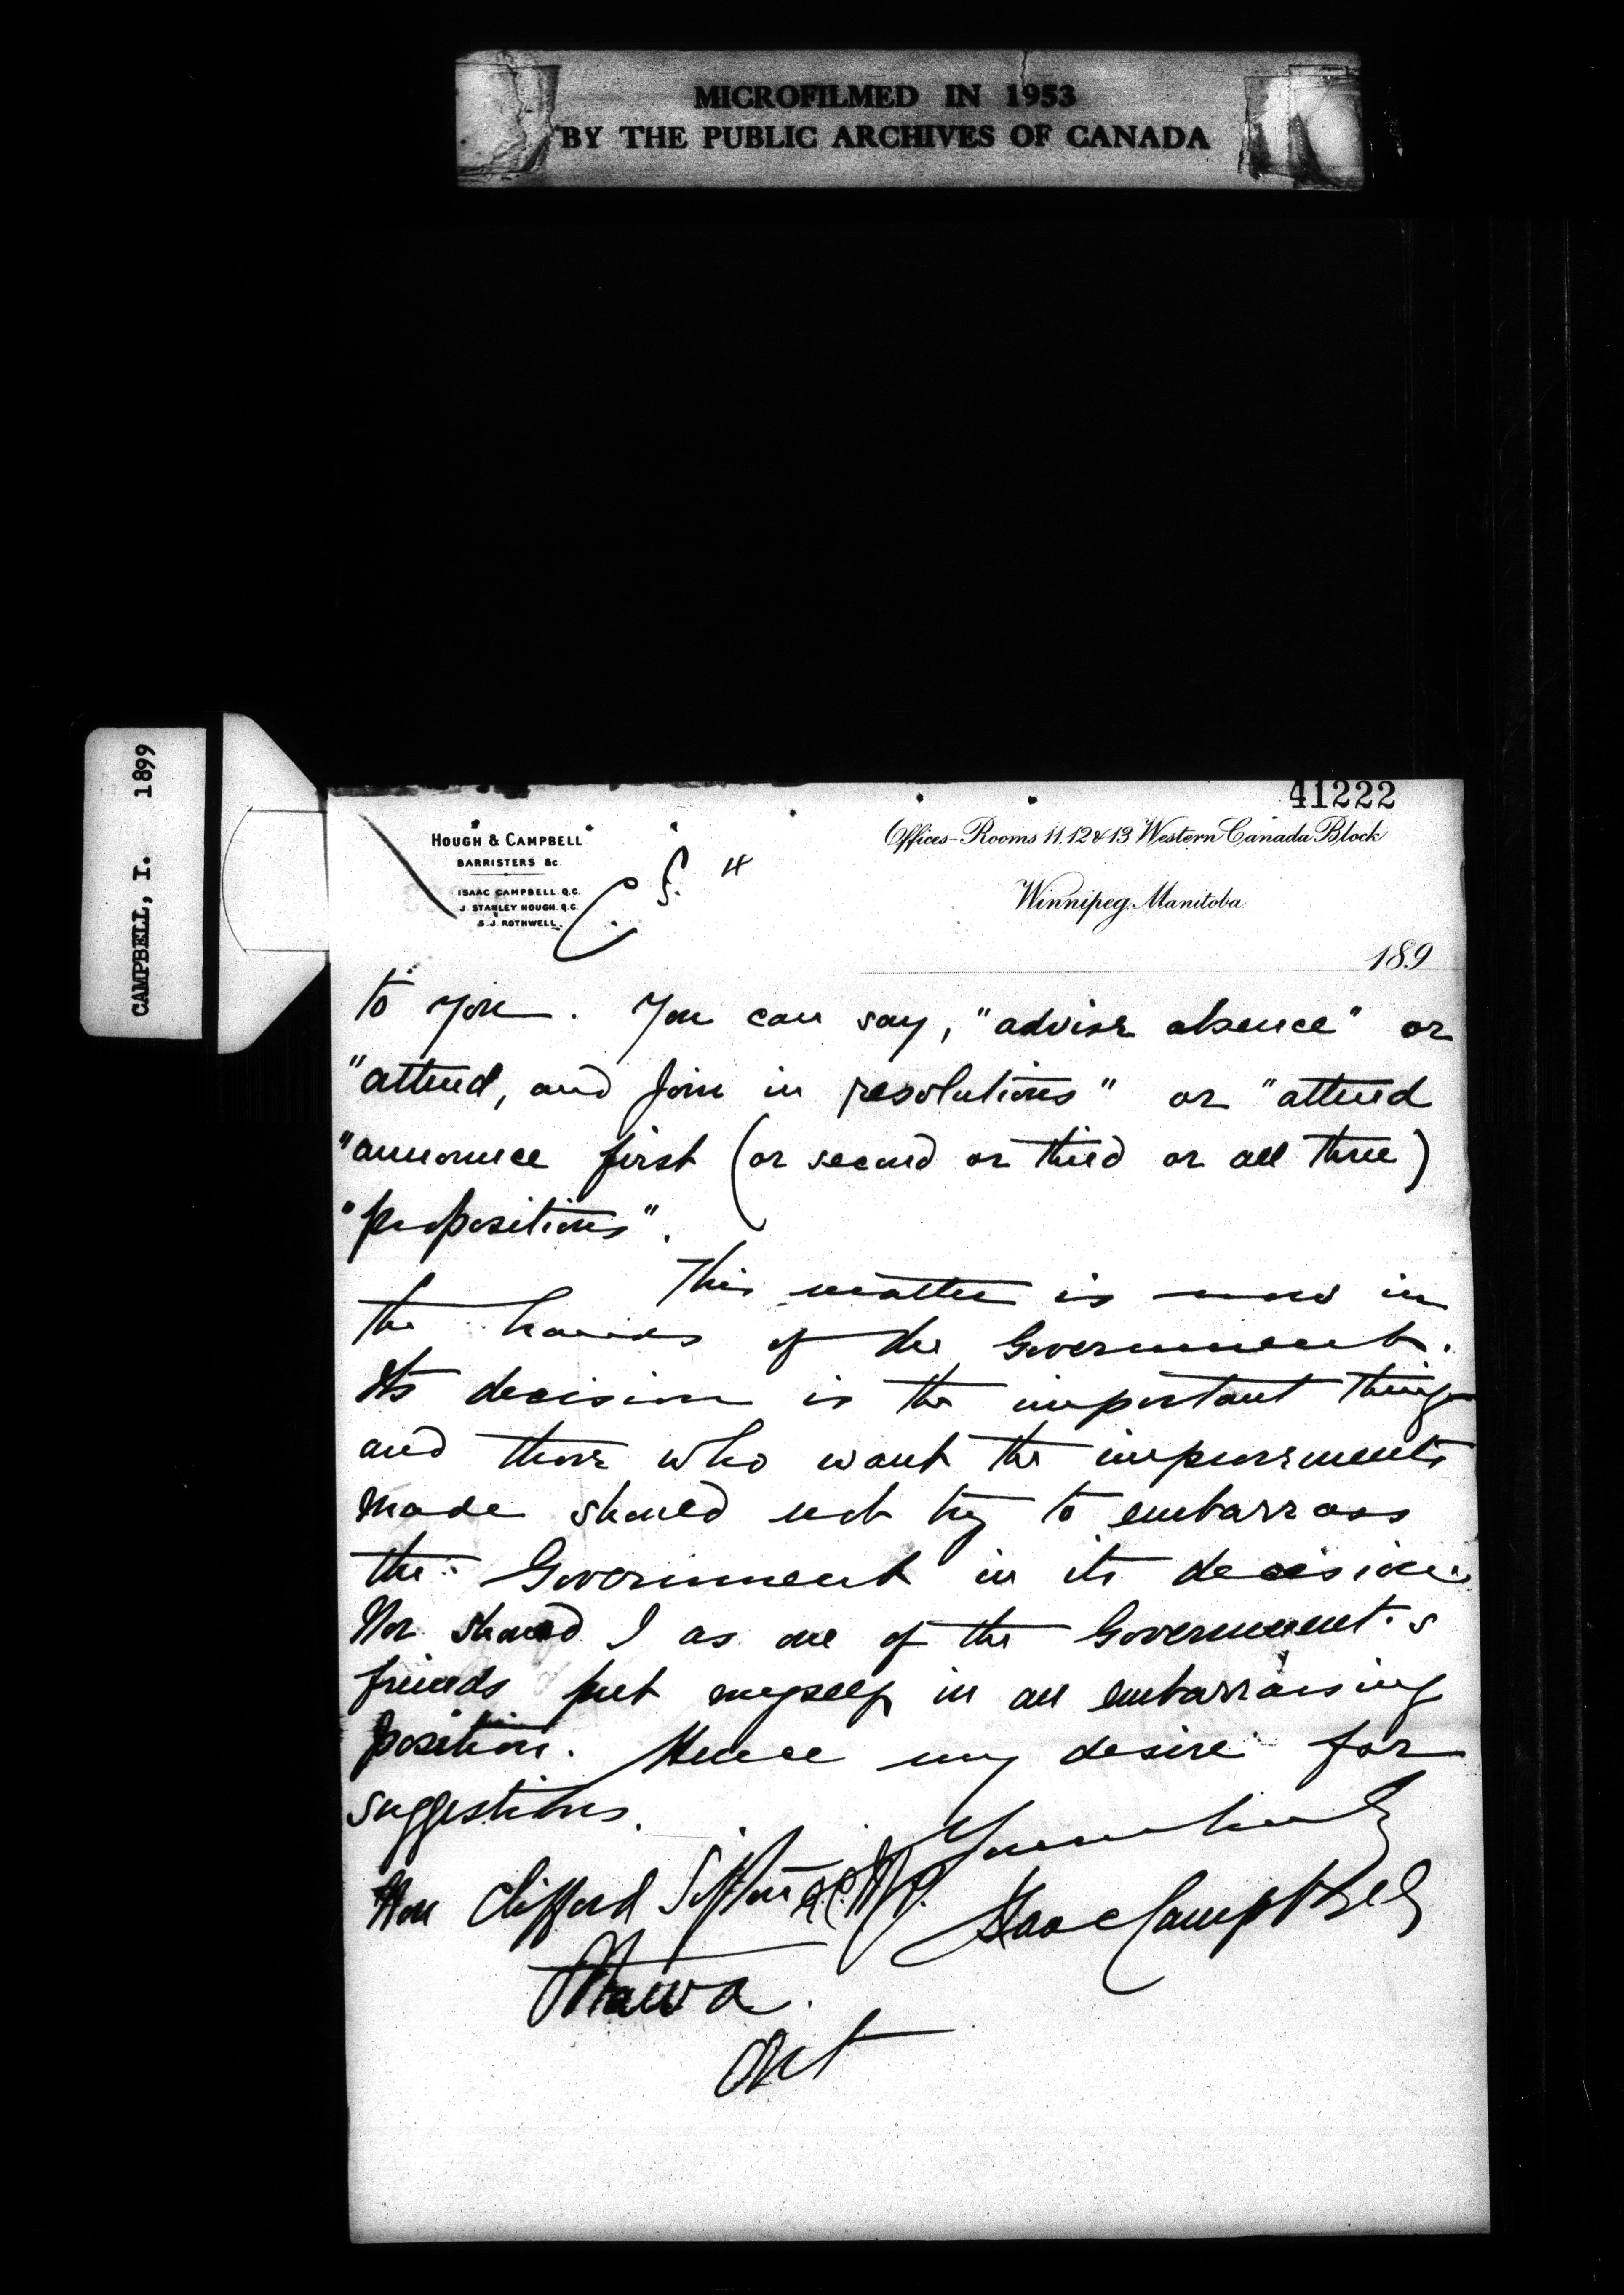 MICROFILMED IN 1953
BY THE PUBLIC ARCHIVES OF CANADA
CAMPBELL, I. 1899
41222
HOUGH & CAMPBELL
BARRISTERS &c.
ISAAC CAMPBELL. Q.C.
J. STANLEY HOUGH. Q.C.
S. J. ROTHWELL.
Offices-Rooms 11.12 & 13 Western Canada Block
Winnipeg. Manitoba
189
to you. You can say, "advise absence" or
"attend, and join in resolutions" or "attend
"announce first (or second or third or all three)
"propositions".
This matter is now in
the hands of the Government.
Its decision is the important thing
and those who want the improvements
made should not try to embarrass
the Government in its decision.
Nor should I as one of the Government's
friends put myself in an embarrassing
position. Hence my desire for
suggestions.
Yours truly
Hon Clifford Sifton Q.C. M.P.
Isaac Campbell
Ottawa.
Ont